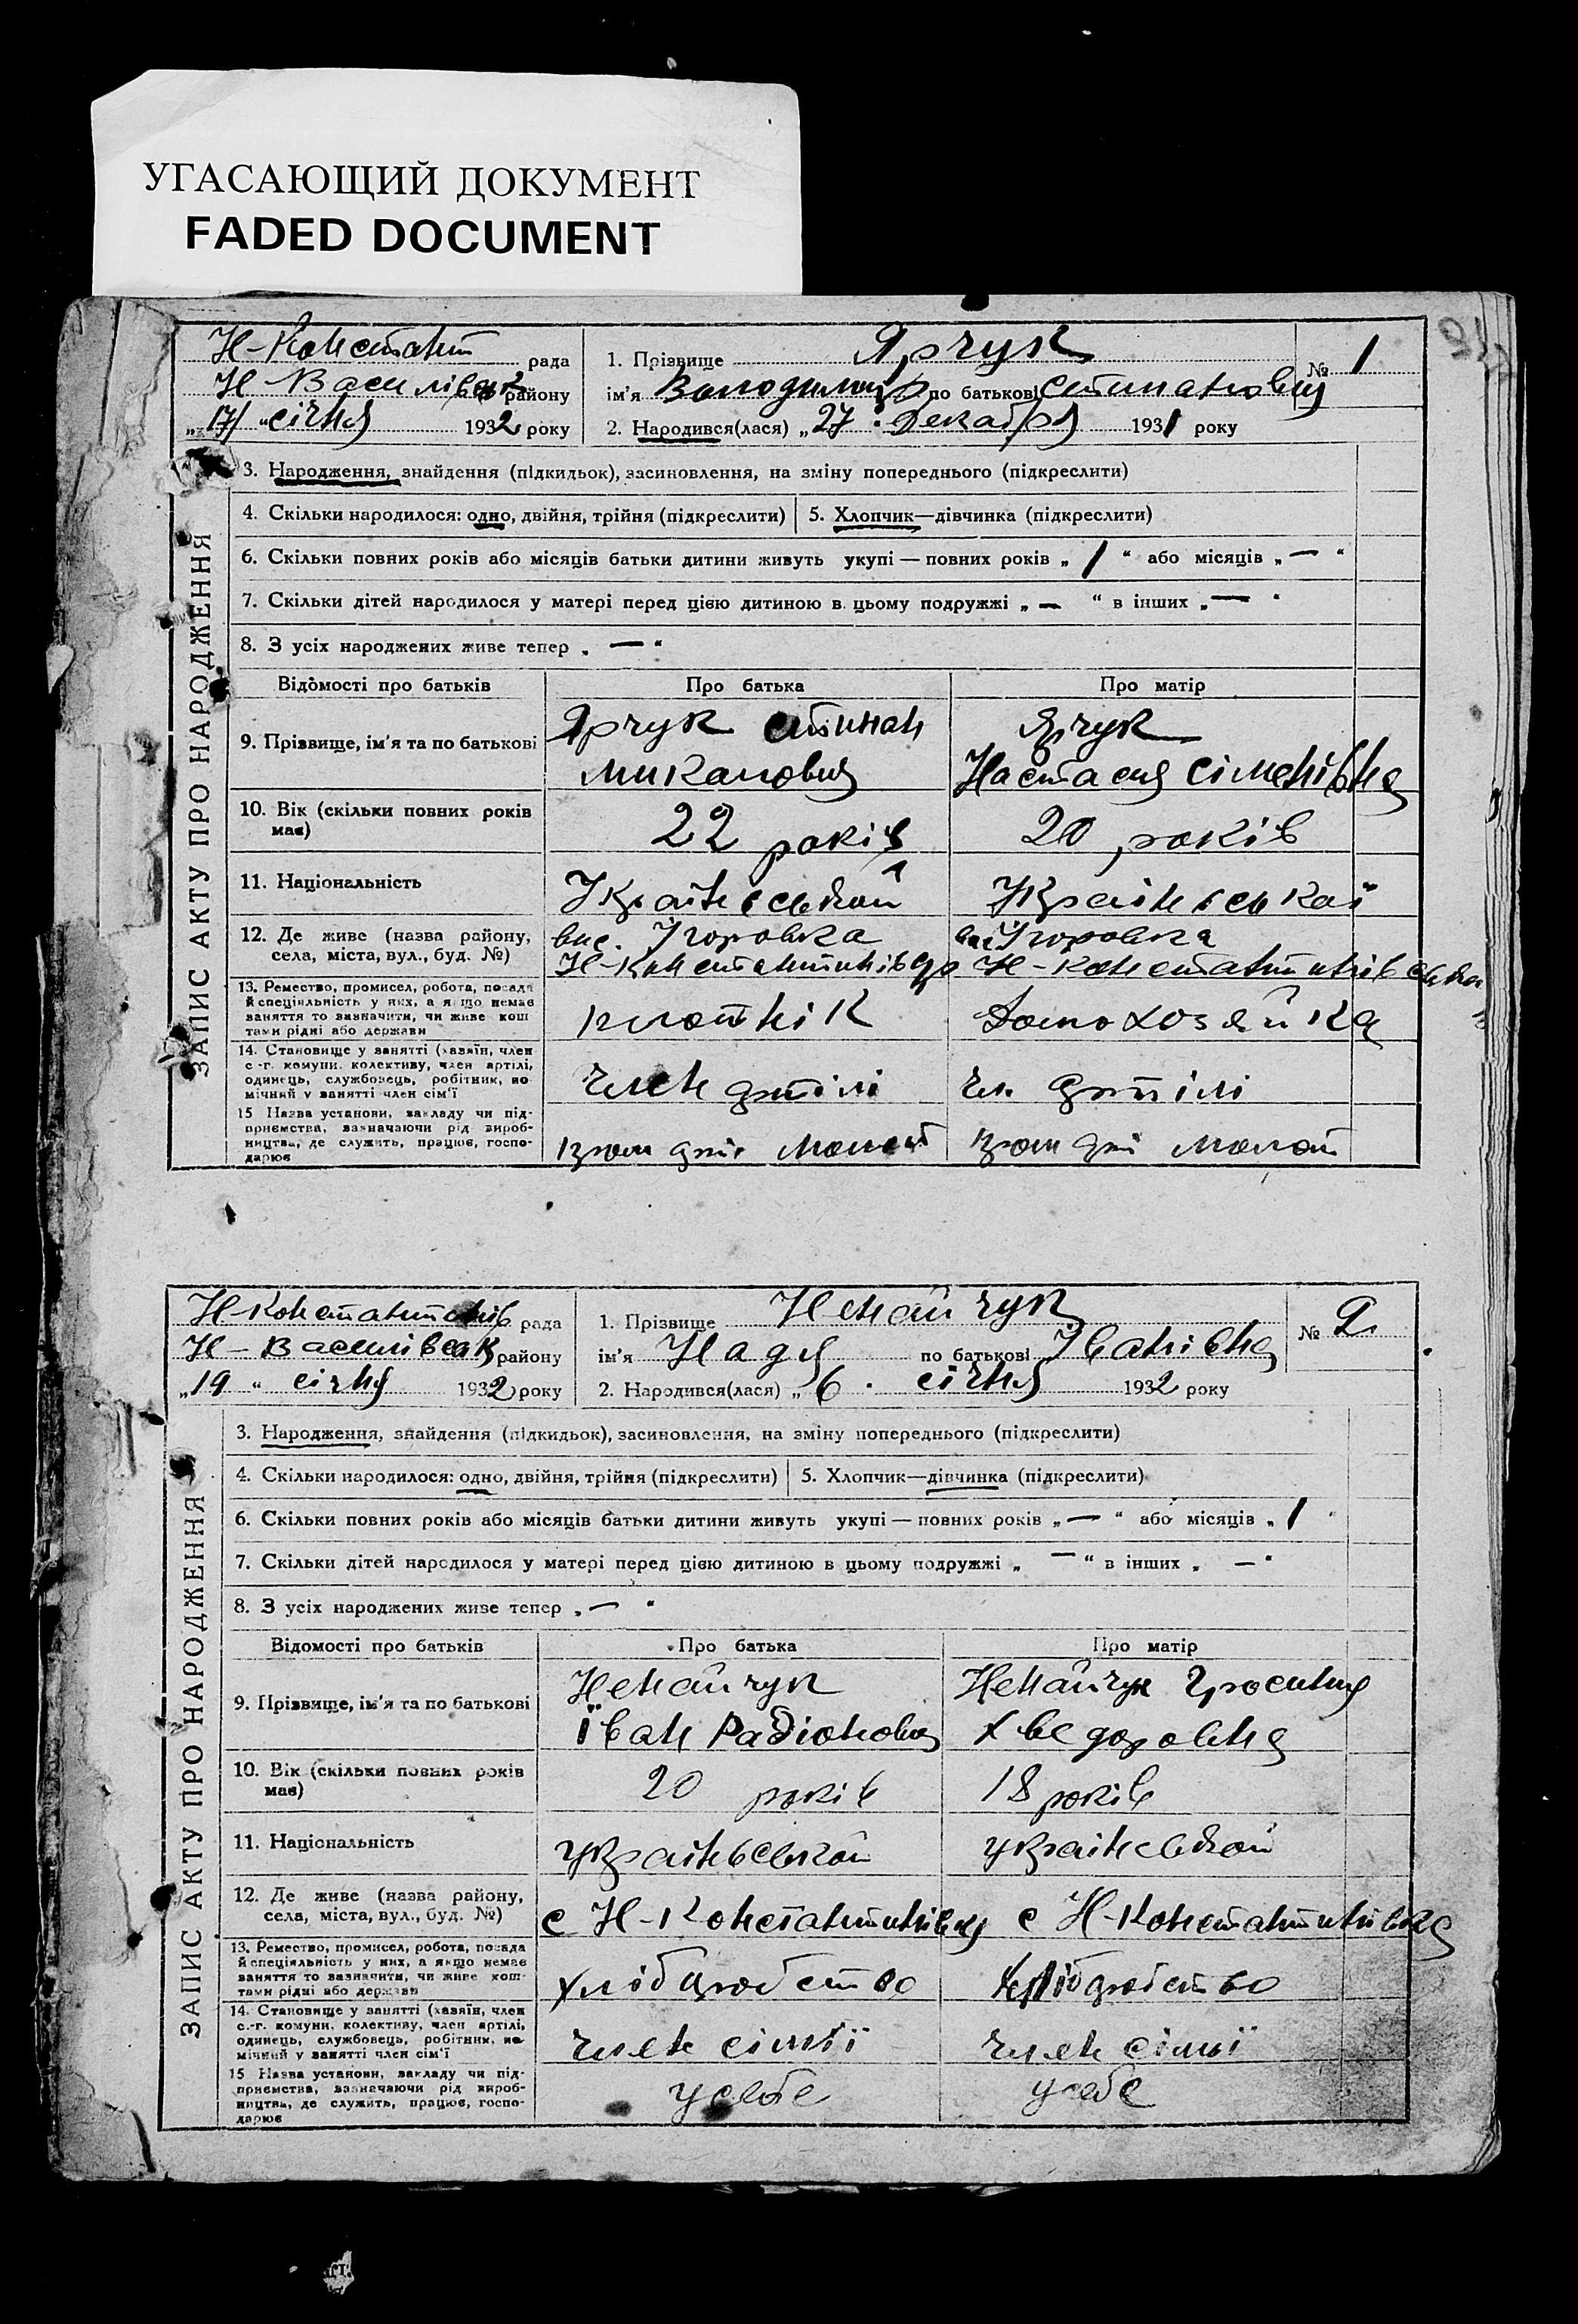 УГАСАЮЩИЙ ДОКУМЕНТ
FADED DOCUMENT
Н-Констант рада
Н Василівськ району
„17“ січня 1932 року
1. Прізвище Ярчук
№ 1
ім'я Володимир по батькові Стипанович
2. Народився(лася) „27. Декабря 1931 року
ЗАПИС АКТУ ПРО НАРОДЖЕННЯ
3. Народження, знайдення (підкидьок), засиновлення, на зміну попереднього (підкреслити)
4. Скільки народилося: одно, двійня, трійня (підкреслити)
5. Хлопчик—дівчинка (підкреслити)
6. Скільки повних років або місяців батьки дитини живуть укупі — повних років „ 1 “ або місяців „ — “
7. Скільки дітей народилося у матері перед цією дитиною в цьому подружжі „ — “ в інших „ — “
8. З усіх народжених живе тепер „ — “
Відомості про батьків
Про батька
Про матір
9. Прізвище, ім'я та по батькові
Ярчук Стипан
Ярчук
Настасия Сіменівна
10. Вік (скільки повних років
має)
22 років
20 років
11. Національність
Українськой
Українськаї
12. Де живе (назва району,
села, міста, вул., буд. №)
вис.
Н-Константинівка
Н-Константинівська
13. Ремество, промисел, робота, посада
й спеціяльність у них, а якщо немає
заняття то зазначити, чи живе кош
тами рідні або держави
плотнік
Домохозяйка
14. Становище у занятті (хазяїн, член
с.-г. комуни, колективу, член артілі,
одинець, службовець, робітник, по
мічний у занятті член сім'ї
член артілі
чл. артілі
15 Назва установи, закладу чи під-
приємства, зазначаючи рід вироб-
ництва, де служить, працює, госпо-
дарює
пром арт Молот
пром арт Молот
Н-Константинів рада
Н-Василівськ району
„19“ січня 1932 року
1. Прізвище Ненайчук
№ 2
ім'я Надя по батькові Іванівна
2. Народився(лася) „6. січня 1932 року
ЗАПИС АКТУ ПРО НАРОДЖЕННЯ
3. Народження, знайдення (підкидьок), засиновлення, на зміну попереднього (підкреслити)
4. Скільки народилося: одно, двійня, трійня (підкреслити)
5. Хлопчик—дівчинка (підкреслити)
6. Скільки повних років або місяців батьки дитини живуть укупі — повних років „ — “ або місяців „ 1 “
7. Скільки дітей народилося у матері перед цією дитиною в цьому подружжі „ — “ в інших „ — “
8. З усіх народжених живе тепер „ — “
Відомості про батьків
Про батька
Про матір
9. Прізвище, ім'я та по батькові
Ненайчук
Іван Радіонович
Ненайчук
Хведоровна
10. Вік (скільки повних років
має)
20 років
18 років
11. Національність
українськой
українськой
12. Де живе (назва району,
села, міста, вул., буд. №)
с Н-Константинівка
с Н-Константинівка
13. Ремество, промисел, робота, посада
й спеціяльність у них, а якщо немає
заняття то зазначити, чи живе кош-
тами рідні або держави
хліборобство
хліборобство
14. Становище у занятті (хазяїн, член
с.-г. комуни, колективу, член артілі,
одинець, службовець, робітник, по
мічний у занятті член сім'ї
член сімії
член сімьї
15 Назва установи, закладу чи під-
приємства, зазначаючи рід вироб-
ництва, де служить, працює, госпо-
дарює
у себе
у себе